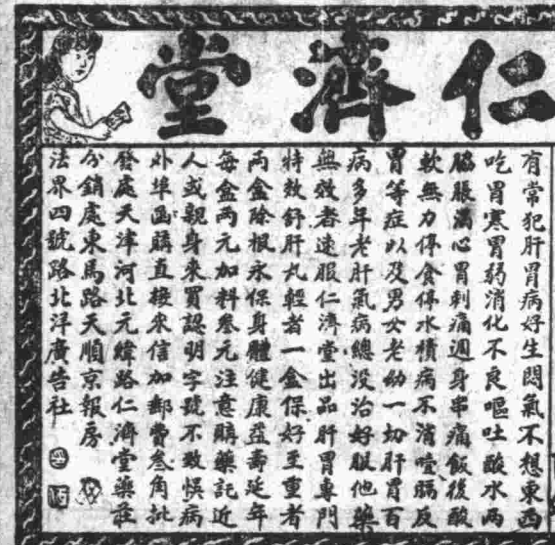 仁濟堂
有常犯肝胃病好生悶氣不想東西
吃胃寒胃弱消化不良嘔吐酸水兩
脇脹滿心胃刺痛週身串痛飯後酸
軟無力停食停水積病不消噎膈反
胃等症以及男女老幼一切肝胃百
病多年老肝氣病總没治好服他藥
無效者速服仁濟堂出品肝胃專門
特效舒肝丸輕者一盒保好至重者
兩盒除根永保身體健康益壽延年
每盒兩元加料叁元注意購藥託近
人或親身來買認明字號不致悞病
外埠函購直接來信加郵費叁角批
發處天津河北元緯路仁濟堂藥莊
分銷處東馬路天順京報房
法界四號路北洋廣告社